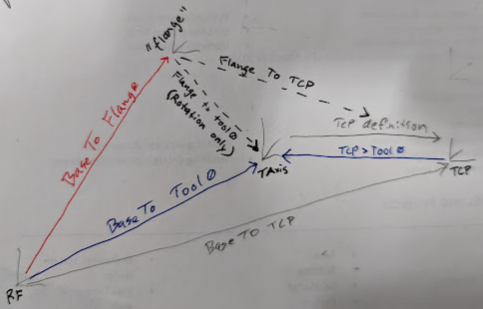 "flange"
Flange To TCP
Flange to tool0
(Rotation only)
Base To Flange
TCP definition
TCP > Tool0
TAxis
TCP
Base To Tool0
Base To TCP
RF